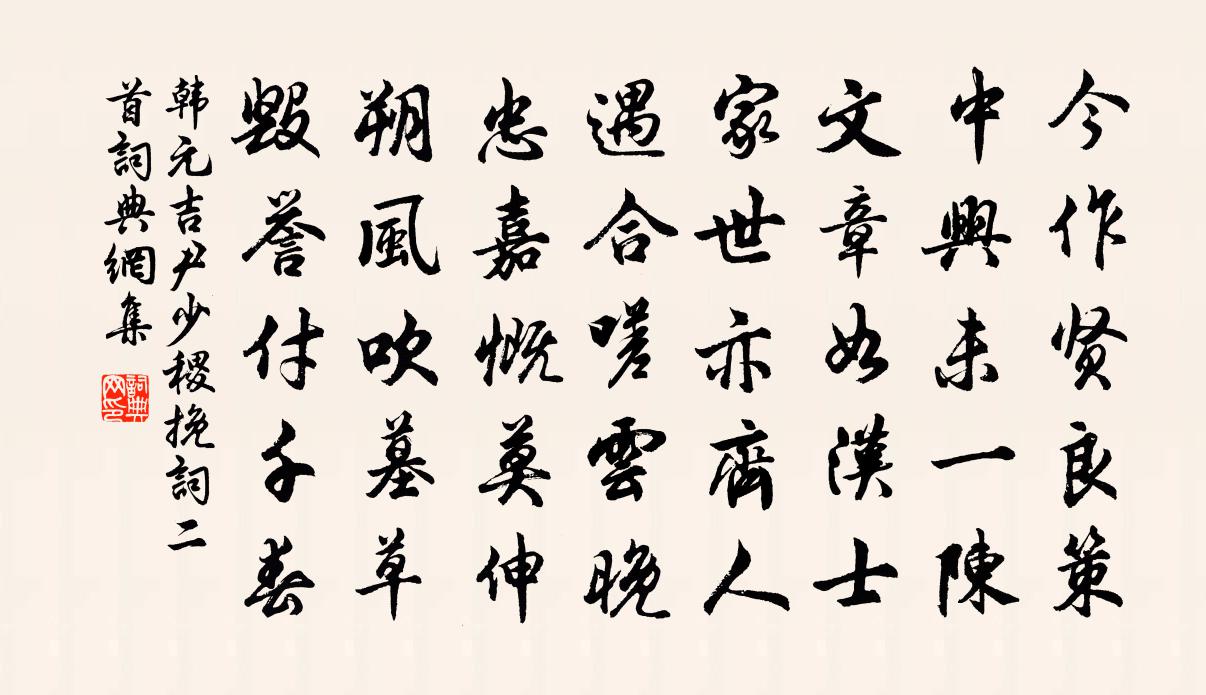 今作贤良策
中興未一陳
文章如漢士
家世亦齊人
遇合嗟雲晚
忠嘉慨莫伸
朔風吹墓草
毀誉付千春
韩元吉尹少稷挽詞二
首詞典網集
詞典
网印